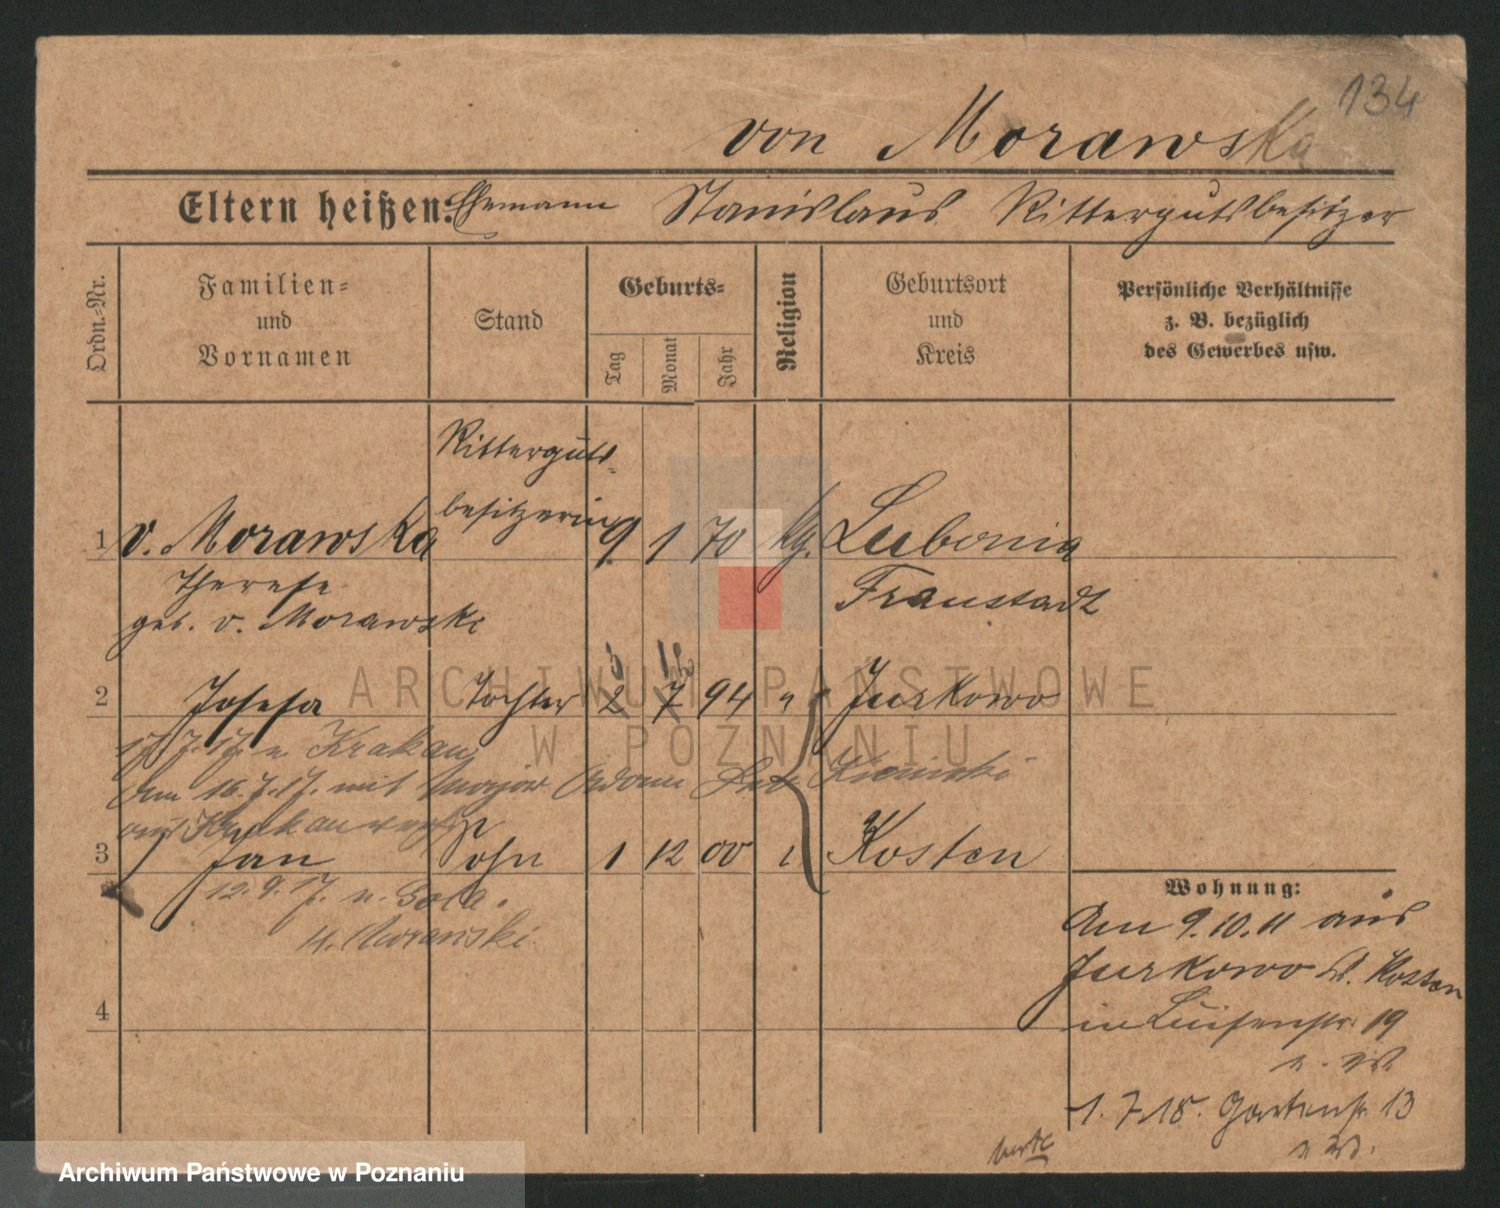 134
von Morawska
Eltern heißen: Ehemann Stanislaus Rittergutsbesitzer
Ordn.-Nr.
Familien-
und
Vornamen
Stand
Geburts-
Tag
Monat
Jahr
Religion
Geburtsort
und
Kreis
Persönliche Verhältnisse
z. B. bezüglich
des Gewerbes usw.
Ritterguts-
besitzerin
1 v. Morawska 9 1 70 kg. Lubonia
Therese Fraustadt
geb. v. Morawski
5 12
2 Josefa Tochter 2 7 94 " Jurkowo
17.7.17. n. Krakau
Am 16.7.17. mit Major Adam
aus Krakau
3 Jan Sohn 1 12 00 " Kosten
12.9.17. n. Gola.
H. Morawski.
4
Wohnung:
Am 9.10.11 aus
Jurkowo Kr. Kosten
in Luisenstr. 19
1.7.15. Gartenstr. 13
ARCHIWUM PAŃSTWOWE
W POZNANIU
Archiwum Państwowe w Poznaniu